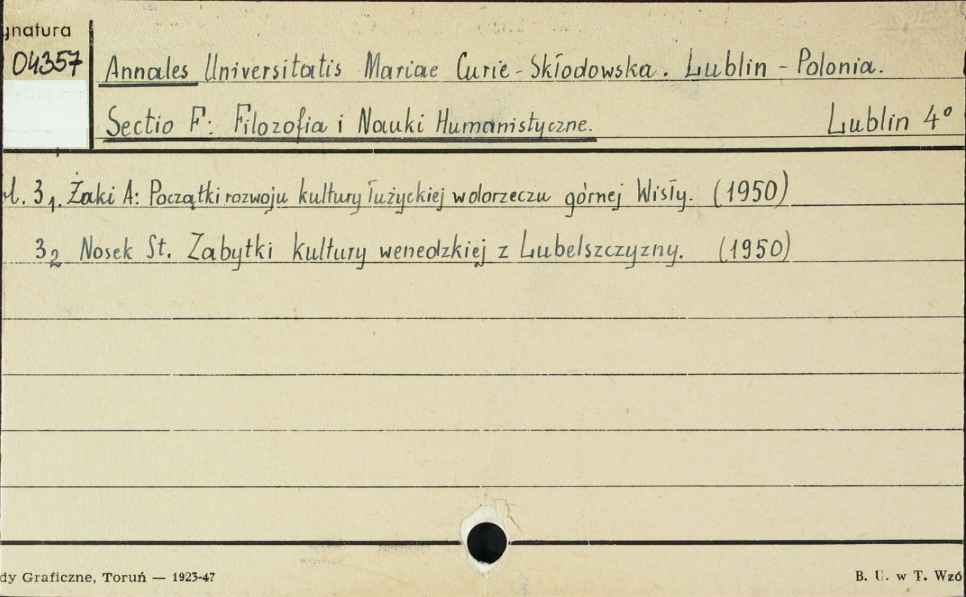 ygnatura
04357
Annales Universitatis Mariae Curie-Skłodowska. Lublin - Polonia.
Sectio F: Filozofia i Nauki Humanistyczne. Lublin 4°
3₁. Żaki A: Początki rozwoju kultury łużyckiej w dorzeczu górnej Wisły. (1950)
3₂ Nosek St. Zabytki kultury wenedzkiej z Lubelszczyzny. (1950)
dy Graficzne, Toruń — 1923-47
B. U. w T. Wzó